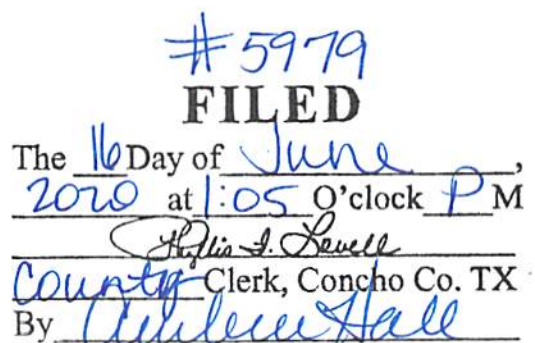 #5979
FILED
The 16 Day of June,
2020 at 1:05 O'clock P M
Phyllis I. Lovell
County Clerk, Concho Co. TX
By Hall